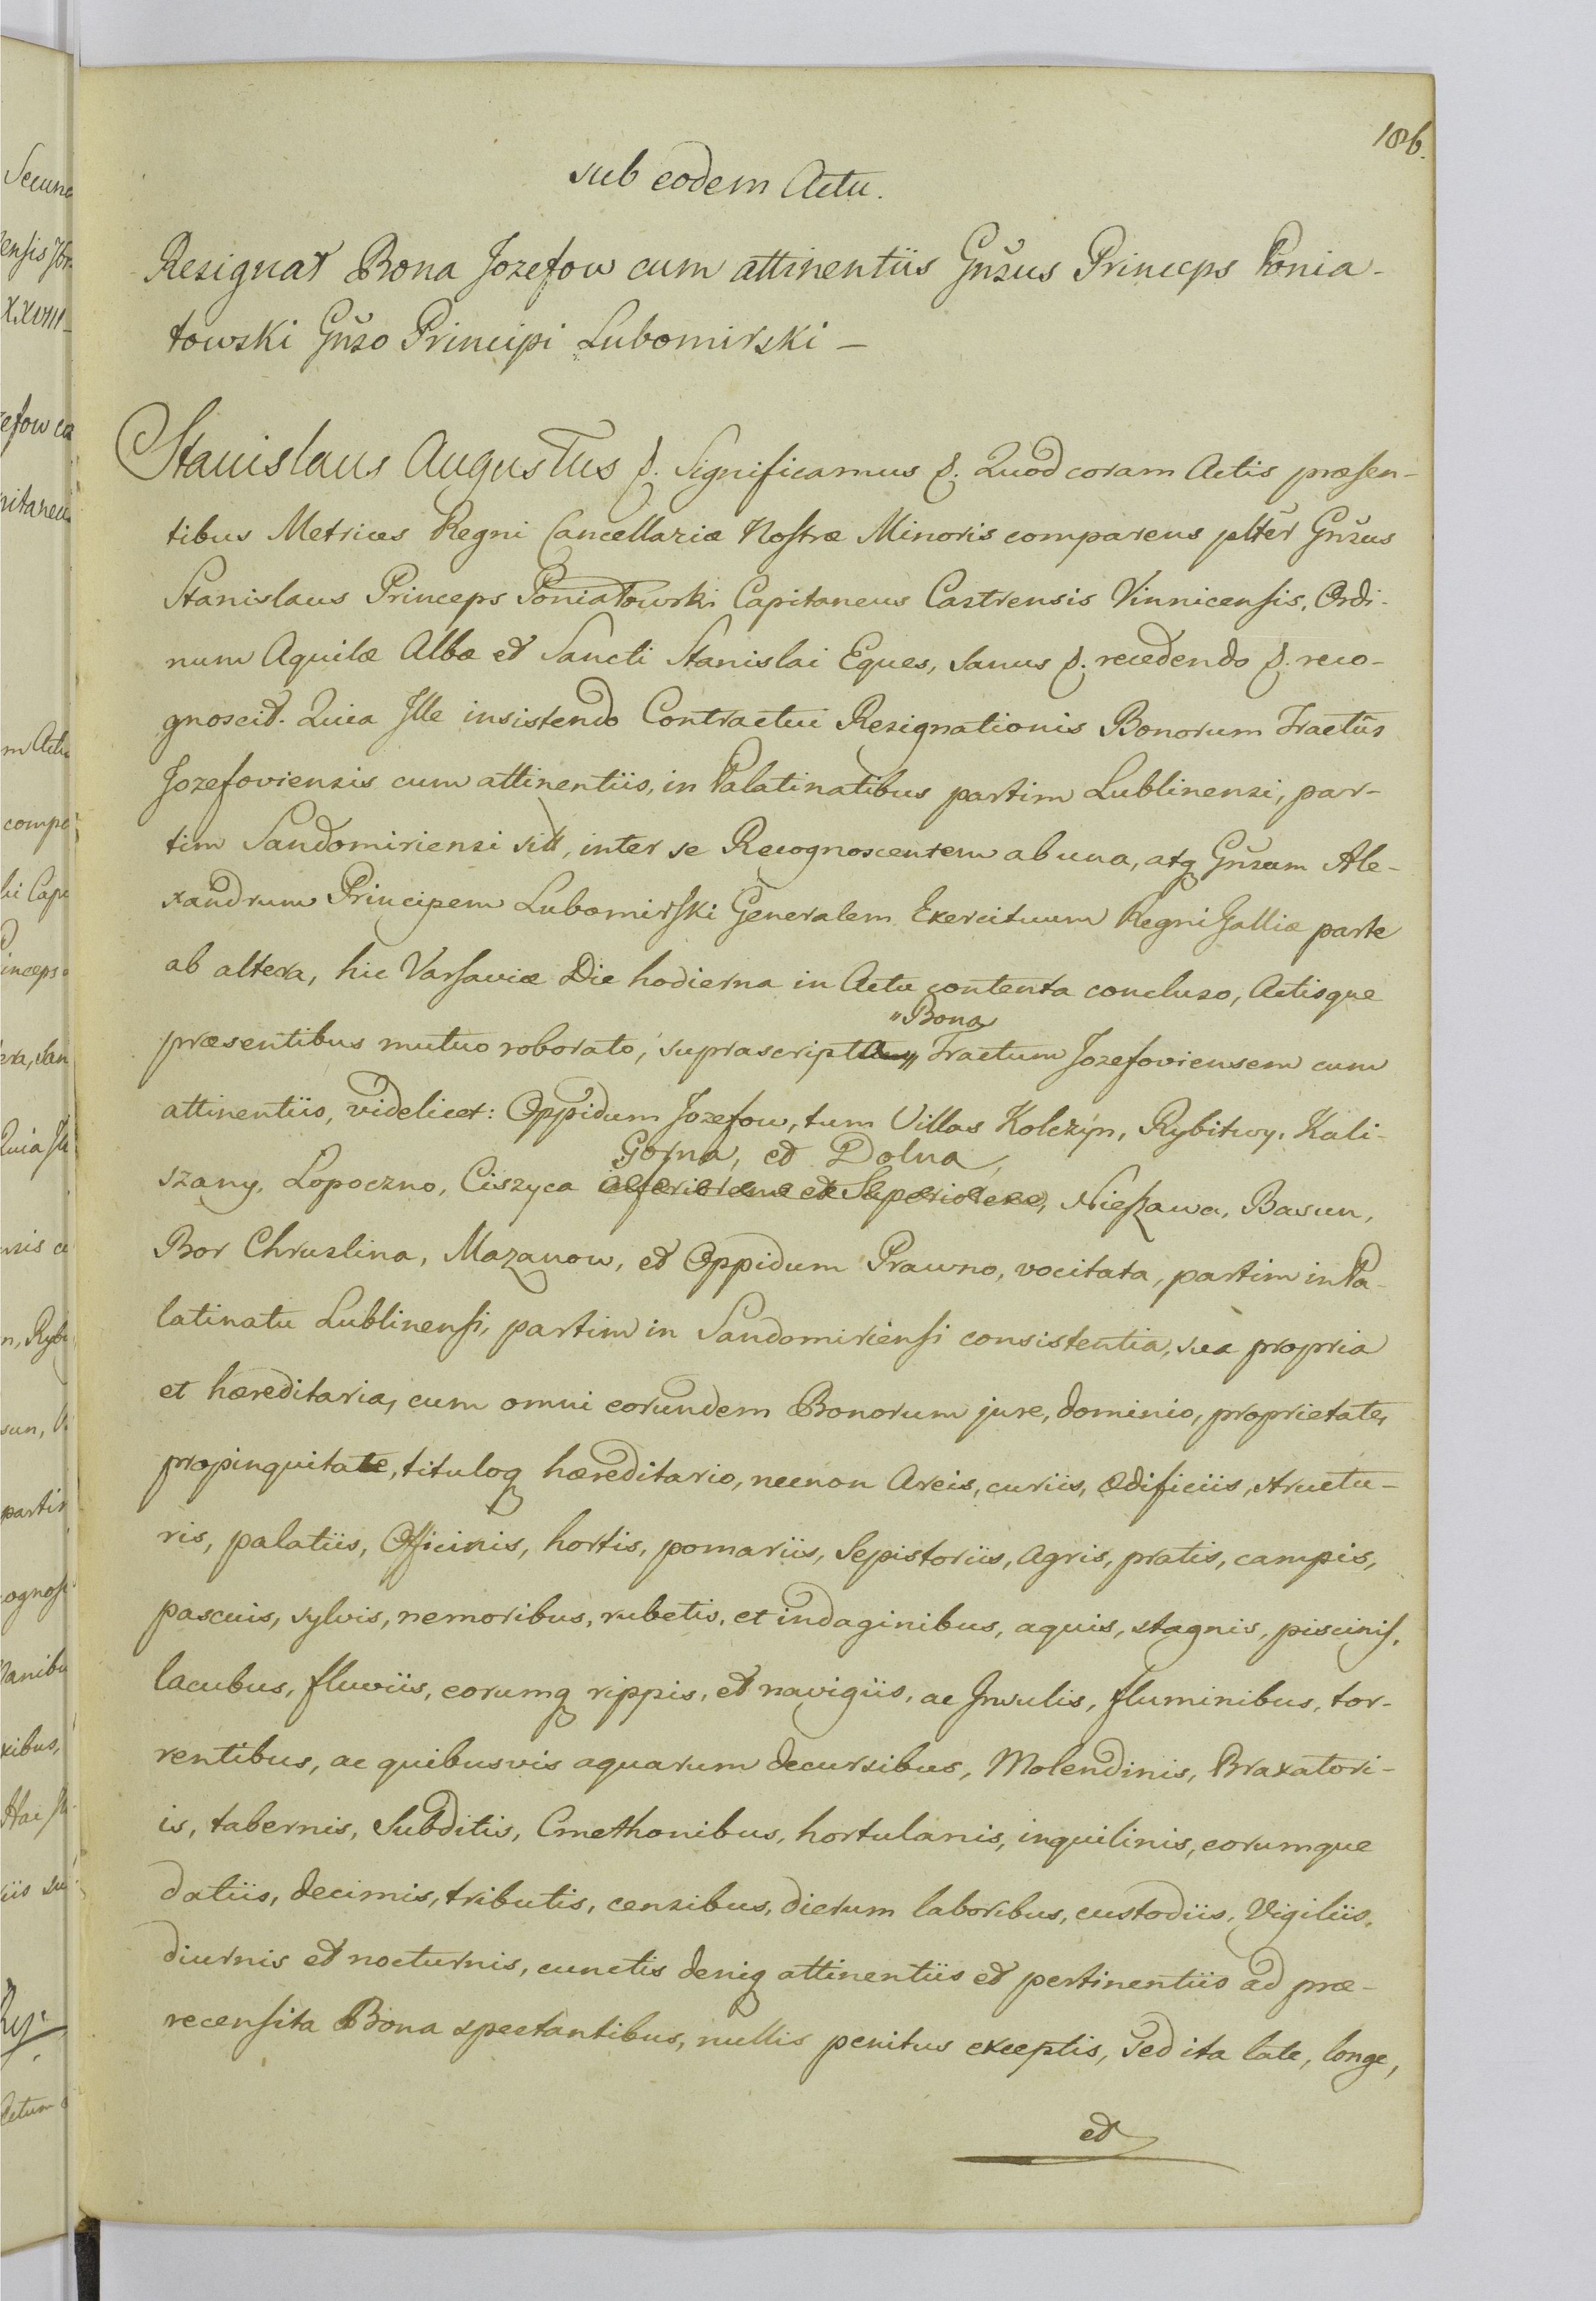 186.
sub eodem Actu.
Resignat Bona Jozefow cum attinentiis Gnsus Princeps Ponia-
towski Gnso Principi Lubomirski –
Stanislaus Augustus &. Significamus &. Quod coram Actis præsen-
tibus Metrices Regni Cancellariæ Nostræ Minoris comparens pltēr Gnsus
Stanislaus Princeps Poniatowski Capitaneus Castrensis Vinnicensis, Ordi-
num Aquilæ Albæ et Sancti Stanislai Eques, sanus &. recedendo &. reco-
gnoscit. Quia Ille insistendo Contractui Resignationis Bonorum Tractûs
Jozefoviensis cum attinentiis, in Palatinatibus partim Lublinensi, par-
tim Sandomiriensi sitt, inter se Recognoscentem ab una, atq Gnsum Ale-
xandrum Principem Lubomirski Generalem Exercituum Regni Galliæ parte
ab altera, hic Varsaviæ Die hodierna in Actu contenta concluso, Actisque
"Bona
præsentibus mutuo roborato, suprascripta" Tractum Jozefoviensem cum
attinentiis, videlicet: Oppidum Jozefow, tum Villas Kolczyn, Rybitwy, Kali-
Gorna, et Dolna,
szany, Lopoczno, Ciszyca inferiorem et Superiorem, Nieszawa, Basun,
Bor Chruslina, Mazanow, et Oppidum Prawno, vocitata, partim in Pa-
latinatu Lublinensi, partim in Sandomiriensi consistentia, sua propria
et hæreditaria, cum omni eorundem Bonorum jure, dominio, proprietate,
propinquitate, tituloq hæreditario, necnon Areis, curiis, ædificiis, structu-
ris, palatiis, Officinis, hortis, pomariis, Sepistoriis, Agris, pratis, campis,
pascuis, sylvis, nemoribus, rubetis, et indaginibus, aquis, stagnis, piscinis,
lacubus, fluviis, eorumq rippis, et navigiis, ac Insulis, fluminibus, tor-
rentibus, ac quibusvis aquarum decursibus, Molendinis, Braxatori-
is, tabernis, Subditis, Cmethonibus, hortulanis, inquilinis, eorumque
datiis, decimis, tributis, censibus, dierum laboribus, custodiis, Vigiliis,
diurnis et nocturnis, cunctis deniq attinentiis et pertinentiis ad præ-
recensita Bona spectantibus, nullis penitus exceptis, sed ita late, longe,
et